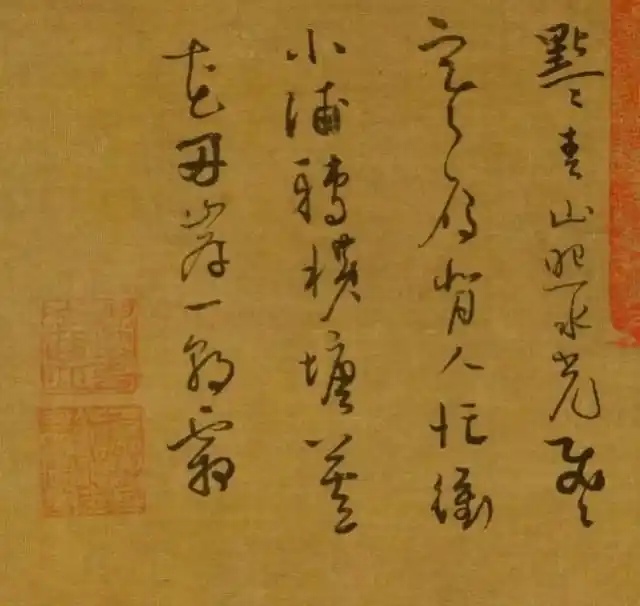 點〻青山照水光飛〻
寒雁背人忙衝
小浦轉橫塘蘆
花兩岸一朝霜